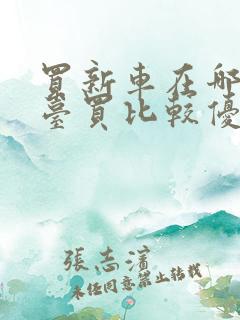 買新車在哪
臺買比較優
張志濱
未经同意禁止转载